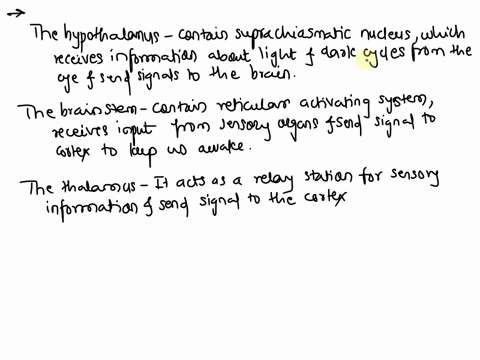 → The hypothalamus - contain suprachiasmatic nucleus, which
receives information about light & dark cycles from the
eye & send signals to the brain.
The brainstem - contain reticular activating system,
receives input from sensory organs & send signal to
cortex to keep us awake.
The thalamus - It acts as a relay station for sensory
information & send signal to the cortex